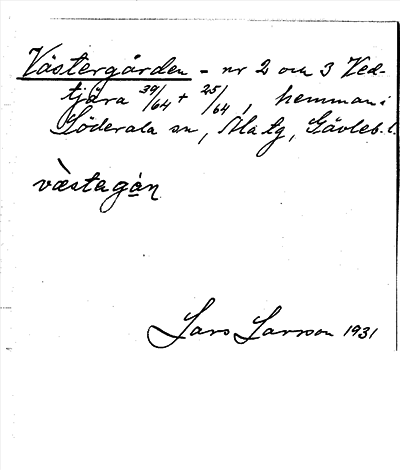 Västergården - nr 2 och 3 Ved-
tjära 39/64 + 25/64, hemman i
Söderala sn, Ala tg, Gävleb. l.
vàstagån
Lars Larsson 1931